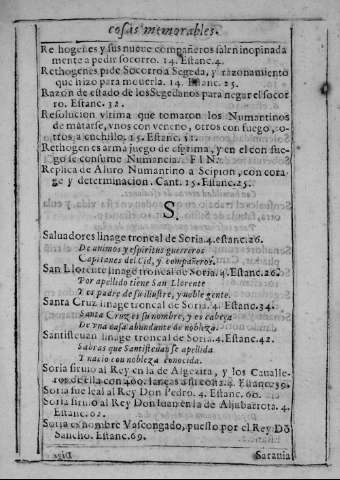 cosas memorables.
Rethogenes y sus nueve compañeros salen inopinada
mente a pedir socorro. 14. Estanc. 4.
Rethogenes pide Socorro a Segeda, y razonamiento
que hizo para moverla. 14. Estanc. 15.
Razon de estado de los Segedanos para negar el socor
ro. Estanc. 32.
Resolucion vltima que tomaron los Numantinos
de matarse, vnos con veneno, otros con fuego, o-
tros a cuchillo. 15. Estanc. 11.
Rethogenes arma juego de esgrima, y en el con fue-
go se consume Numancia. FIN.
Replica de Aluro Numantino a Scipion, con cora
ge y determinacion. Cant. 15. Estanc. 25.
S.
Salvadores linage troncal de Soria. 4. estanc. 26.
De animos y espiritus guerreros
Capitanes del Cid, y compañeros.
San Llorente linage troncal de Soria. 4. Estanc. 26.
Por apellido tiene San Llorente
Y es padre de su ilustre, y noble gente.
Santa Cruz linage troncal de Soria. 4. Estanc. 34.
Santa Cruz es su nombre, y es cabeça
De vna casa abundante de nobleza.
Santistevan linage troncal de Soria. 4. Estanc. 42.
Sabras que Santistevan se apellida
Y nacio con nobleza conocida.
Soria sirvio al Rey en la de Algezira, y los Cavalle-
ros de ella con 400. lanças a su costa. 4. Estanc. 59.
Soria fue leal al Rey Don Pedro. 4. Estanc. 60.
Soria sirvio al Rey Don Iuan en la de Aljubarrota. 4.
Estanc. 62.
Soria es nombre Vascongado, puesto por el Rey Dō
Sancho. Estanc. 69.
Sarania